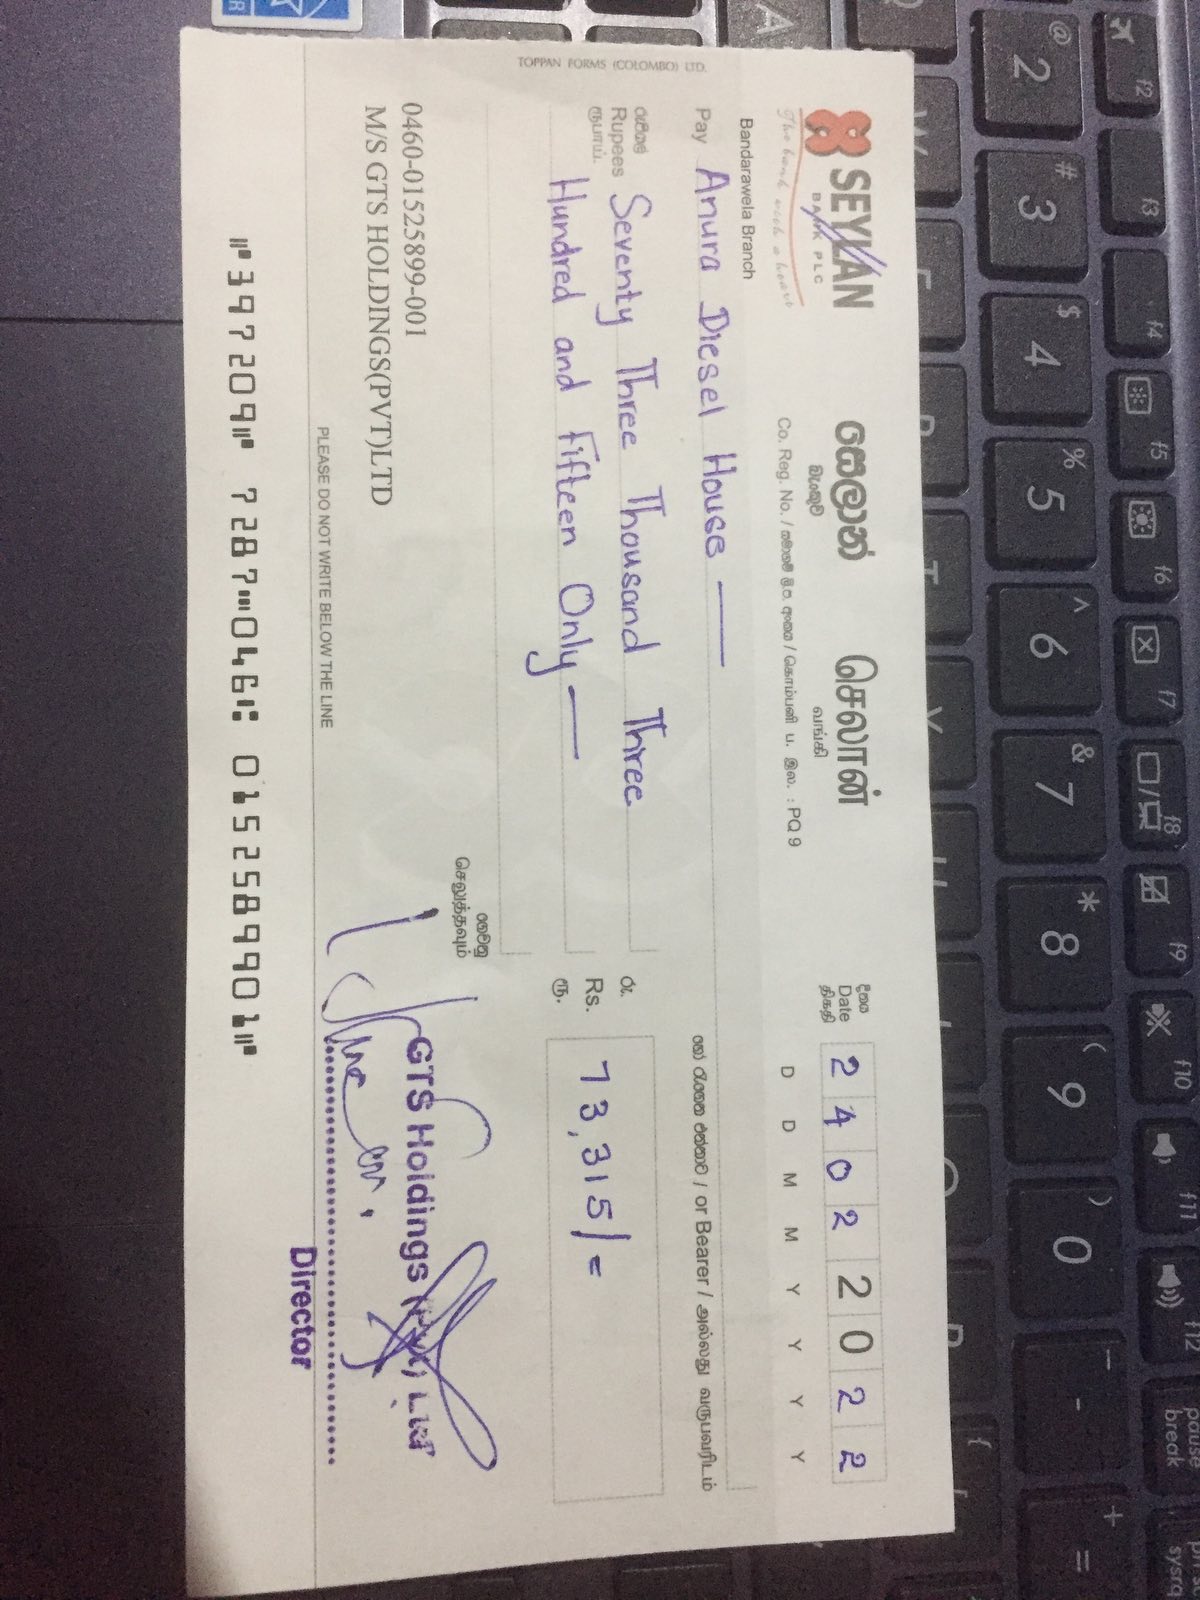 TOPPAN FORMS (COLOMBO) LTD.
SEYLAN
BANK PLC
The bank with a heart
සෙලාන්
බැංකුව
செலான்
வங்கி
Co. Reg. No. / සමාගම් ලි.ප. අංකය / கொம்பனி ப. இல. : PQ 9
Bandarawela Branch
දිනය
Date
திகதி
2 4 0 2 2 0 2 2
D D M M Y Y Y Y
Pay Anura Diesel House
හෝ රැගෙන එන්නාට / or Bearer / அல்லது வருபவரிடம்
රුපියල්
Rupees Seventy Three Thousand Three
ரூபாய்.
Hundred and Fifteen Only
රු.
Rs. 73,315/=
ரூ.
ගෙවනු
செலுத்தவும்
0460-01525899-001
M/S GTS HOLDINGS(PVT)LTD
GTS Holdings (Pvt) Ltd
Director
PLEASE DO NOT WRITE BELOW THE LINE
⑈397209⑈ 7287⑉046⑆ 0152589901⑈
@ 2
# 3
$ 4
% 5
^ 6
& 7
* 8
( 9
) 0
f2
f3
f4
f5
f6
f7
f8
f9
f10
f11
f12
pause
break
sysrq